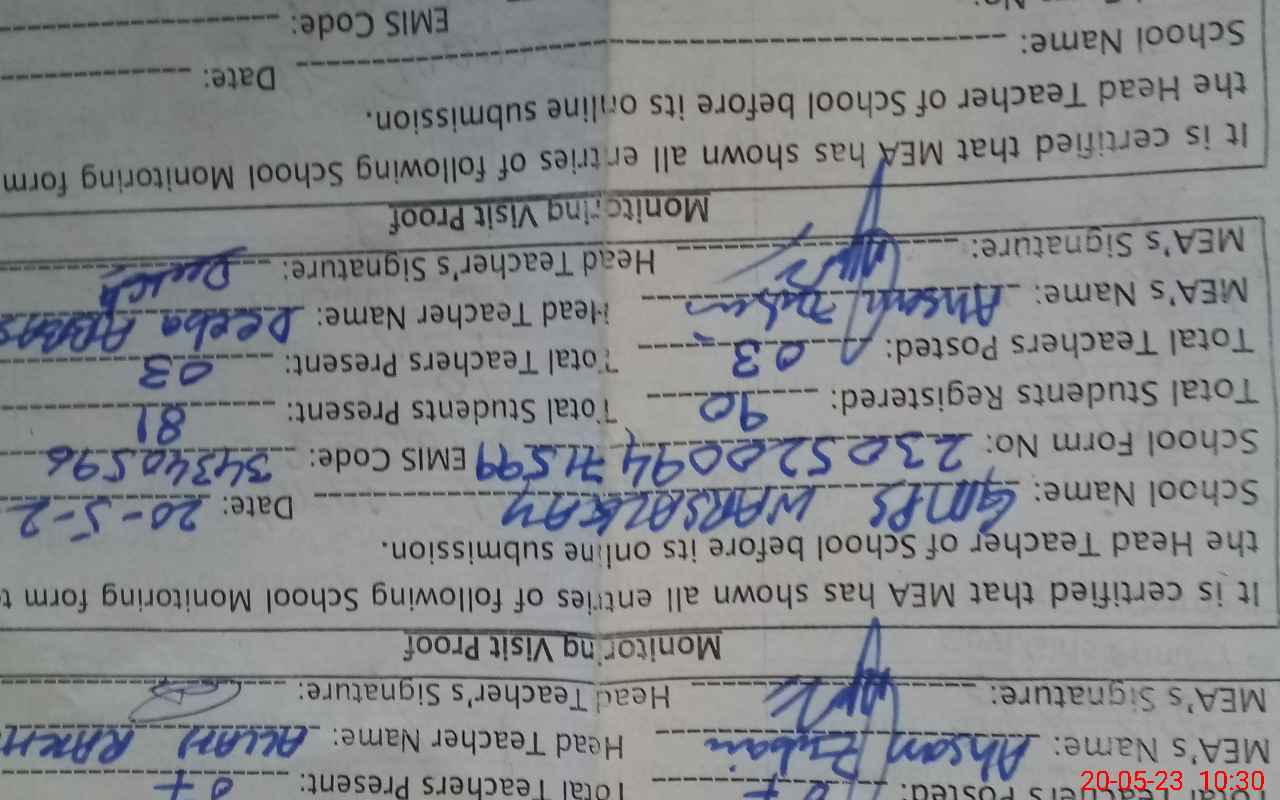 Total Teachers Posted: 07 Total Teachers Present: 07
MEA's Name: Ahsan Zubair Head Teacher Name: ALLAH
MEA's Signature: Head Teacher's Signature:
Monitoring Visit Proof
It is certified that MEA has shown all entries of following School Monitoring School form
the Head Teacher of School before its online submission.
School Name: GMPS Date: 20-5-2
School Form No: 23052009471599 EMIS Code: 34340596
Total Students Registered: 90 Total Students Present: 81
Total Teachers Posted: 03 Total Teachers Present: 03
MEA's Name: Ahsan Zubair Head Teacher Name: Deeba ABBAS
MEA's Signature: Head Teacher's Signature:
Monitoring Visit Proof
It is certified that MEA has shown all entries of following School Monitoring form
the Head Teacher of School before its online submission.
School Name: Date:
EMIS Code:
20-05-23 10:30